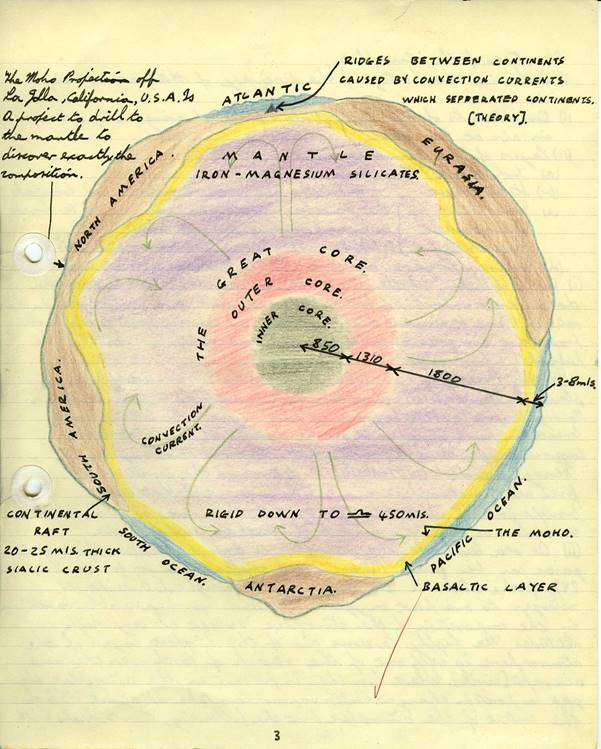 The Moho Projection off
La Jolla, California, U.S.A. Is
A project to drill to
the mantle to
discover exactly the
composition.
RIDGES BETWEEN CONTINENTS
CAUSED BY CONVECTION CURRENTS
WHICH SEPPERATED CONTINENTS.
[THEORY].
ATLANTIC
NORTH AMERICA.
EURASIA.
MANTLE
IRON-MAGNESIUM SILICATES.
THE GREAT CORE.
OUTER CORE.
INNER CORE.
850
1310
1800
3-8mls.
SOUTH AMERICA.
CONVECTION
CURRENT.
CONTINENTAL
RAFT
20-25 MLS. THICK
SIALIC CRUST
RIGID DOWN TO ≏ 450MLS.
THE MOHO.
PACIFIC OCEAN.
SOUTH OCEAN.
ANTARCTIA.
BASALTIC LAYER
3